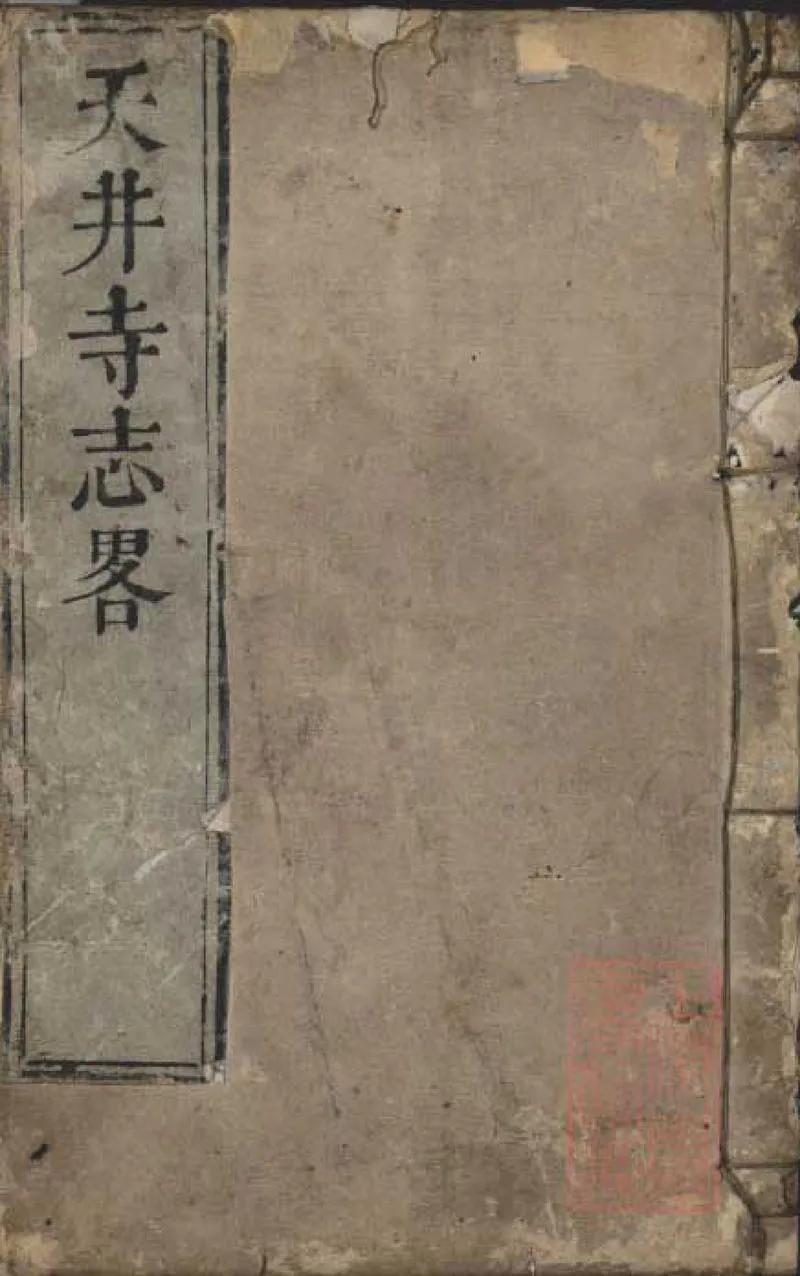 天井寺志畧